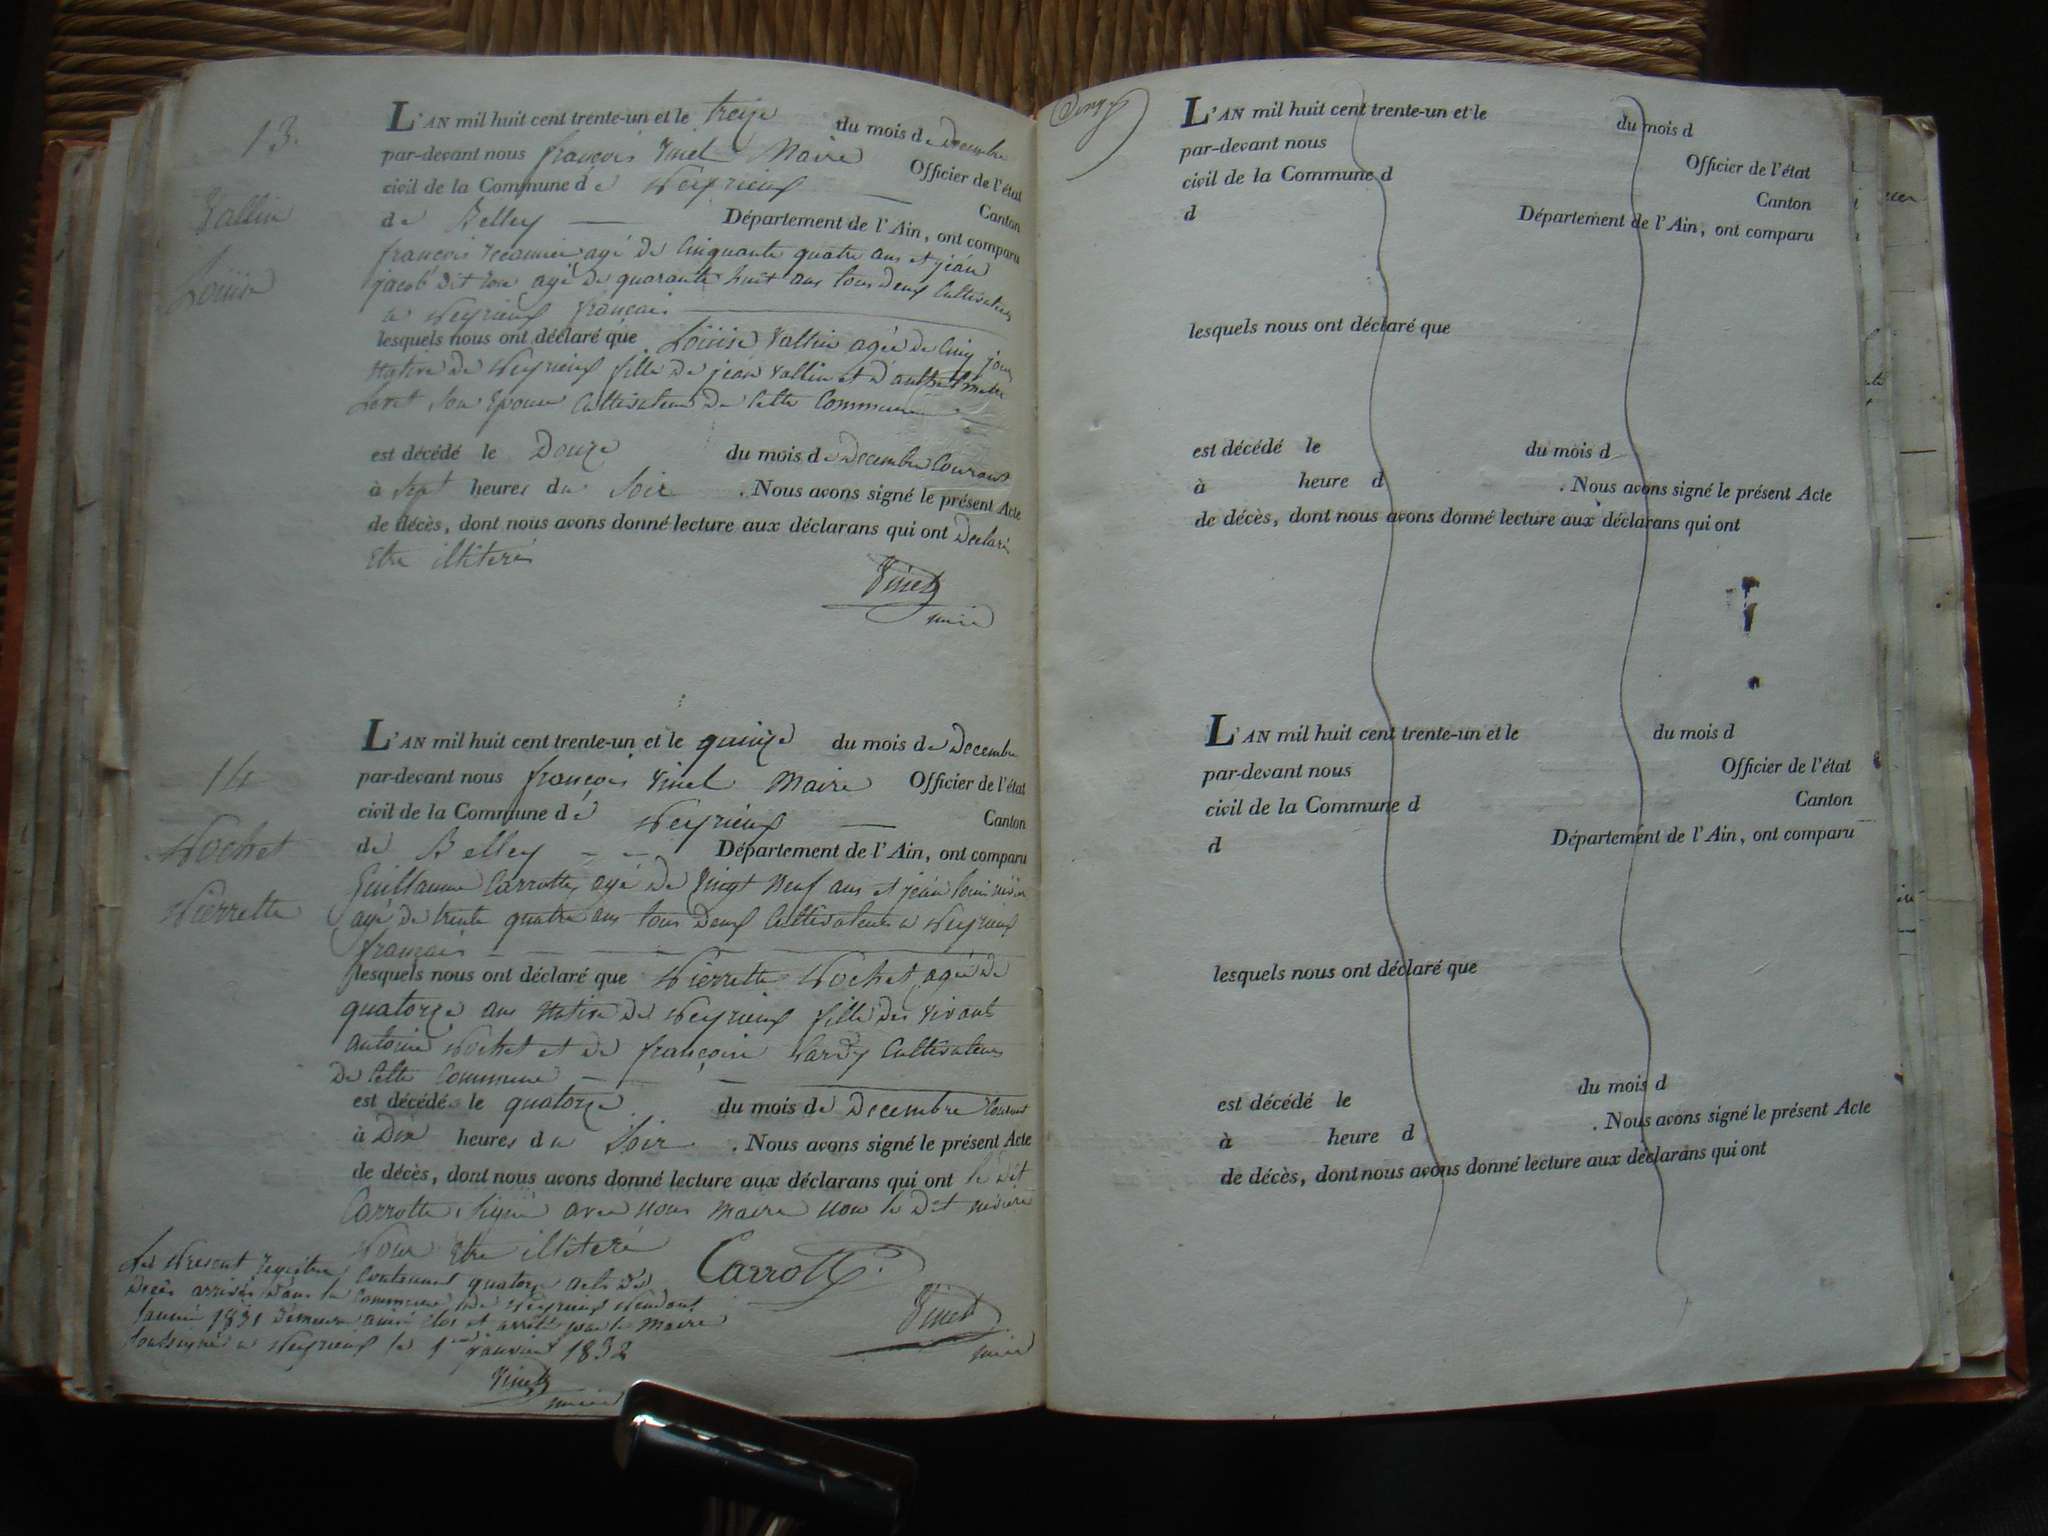 13.
Vallin
Louise
L'AN mil huit cent trente-un et le treize du mois de Decembre
par-devant nous françois Vinet Maire Officier de l'état
civil de la Commune de Peyrieux Canton
de Belley Département de l'Ain, ont comparu
françois Recamier agé de Cinquante quatre ans et jean
jacob dit agé de quarante huit ans tous deux Cultivateurs
a Peyrieux français
lesquels nous ont déclaré que Louise Vallin agée de Cinq jours
Native de Peyrieux fille de jean Vallin et d'
son Epouse Cultivateurs de Cette Commune
est décédé le Douze du mois de Decembre Courant
à sept heures du Soir . Nous avons signé le présent Acte
de décès, dont nous avons donné lecture aux déclarans qui ont Declaré
Etre illiteré
Vinet
maire
14
Pochet
Pierrette
L'AN mil huit cent trente-un et le quinze du mois de Decembre
par-devant nous françois Vinet Maire Officier de l'état
civil de la Commune de Peyrieux Canton
de Belley Département de l'Ain, ont comparu
Guillaume Carrotte, agé de Vingt Neuf ans et jean
agé de trente quatre ans tous deux Cultivateurs a Peyrieux
français
lesquels nous ont déclaré que Pierrette Pochet agée de
quatorze ans Native de Peyrieux fille des vivants
antoine Pochet et de françoise Cultivateurs
De Cette Commune
est décédé le quatorze du mois de Decembre Courant
à Dix heures du Soir . Nous avons signé le présent Acte
de décès, dont nous avons donné lecture aux déclarans qui ont le dit
Carrotte signé avec nous Maire non le dit
Pour Etre illiteré
Carrotte
Vinet
maire
Le Present registre Contenant quatorze acts de
Deces arrivés dans la Commune de Peyrieux Pendant
l'année 1831 Demeure ainsi clos et arrêté par le Maire
soussigné a Peyrieux le 1er janvier 1832
Vinet
maire
L'AN mil huit cent trente-un et le du mois d
par-devant nous Officier de l'état
civil de la Commune d Canton
d Département de l'Ain, ont comparu
lesquels nous ont déclaré que
est décédé le du mois d
à heure d . Nous avons signé le présent Acte
de décès, dont nous avons donné lecture aux déclarans qui ont
L'AN mil huit cent trente-un et le du mois d
par-devant nous Officier de l'état
civil de la Commune d Canton
d Département de l'Ain, ont comparu
lesquels nous ont déclaré que
est décédé le du mois d
à heure d . Nous avons signé le présent Acte
de décès, dont nous avons donné lecture aux déclarans qui ont